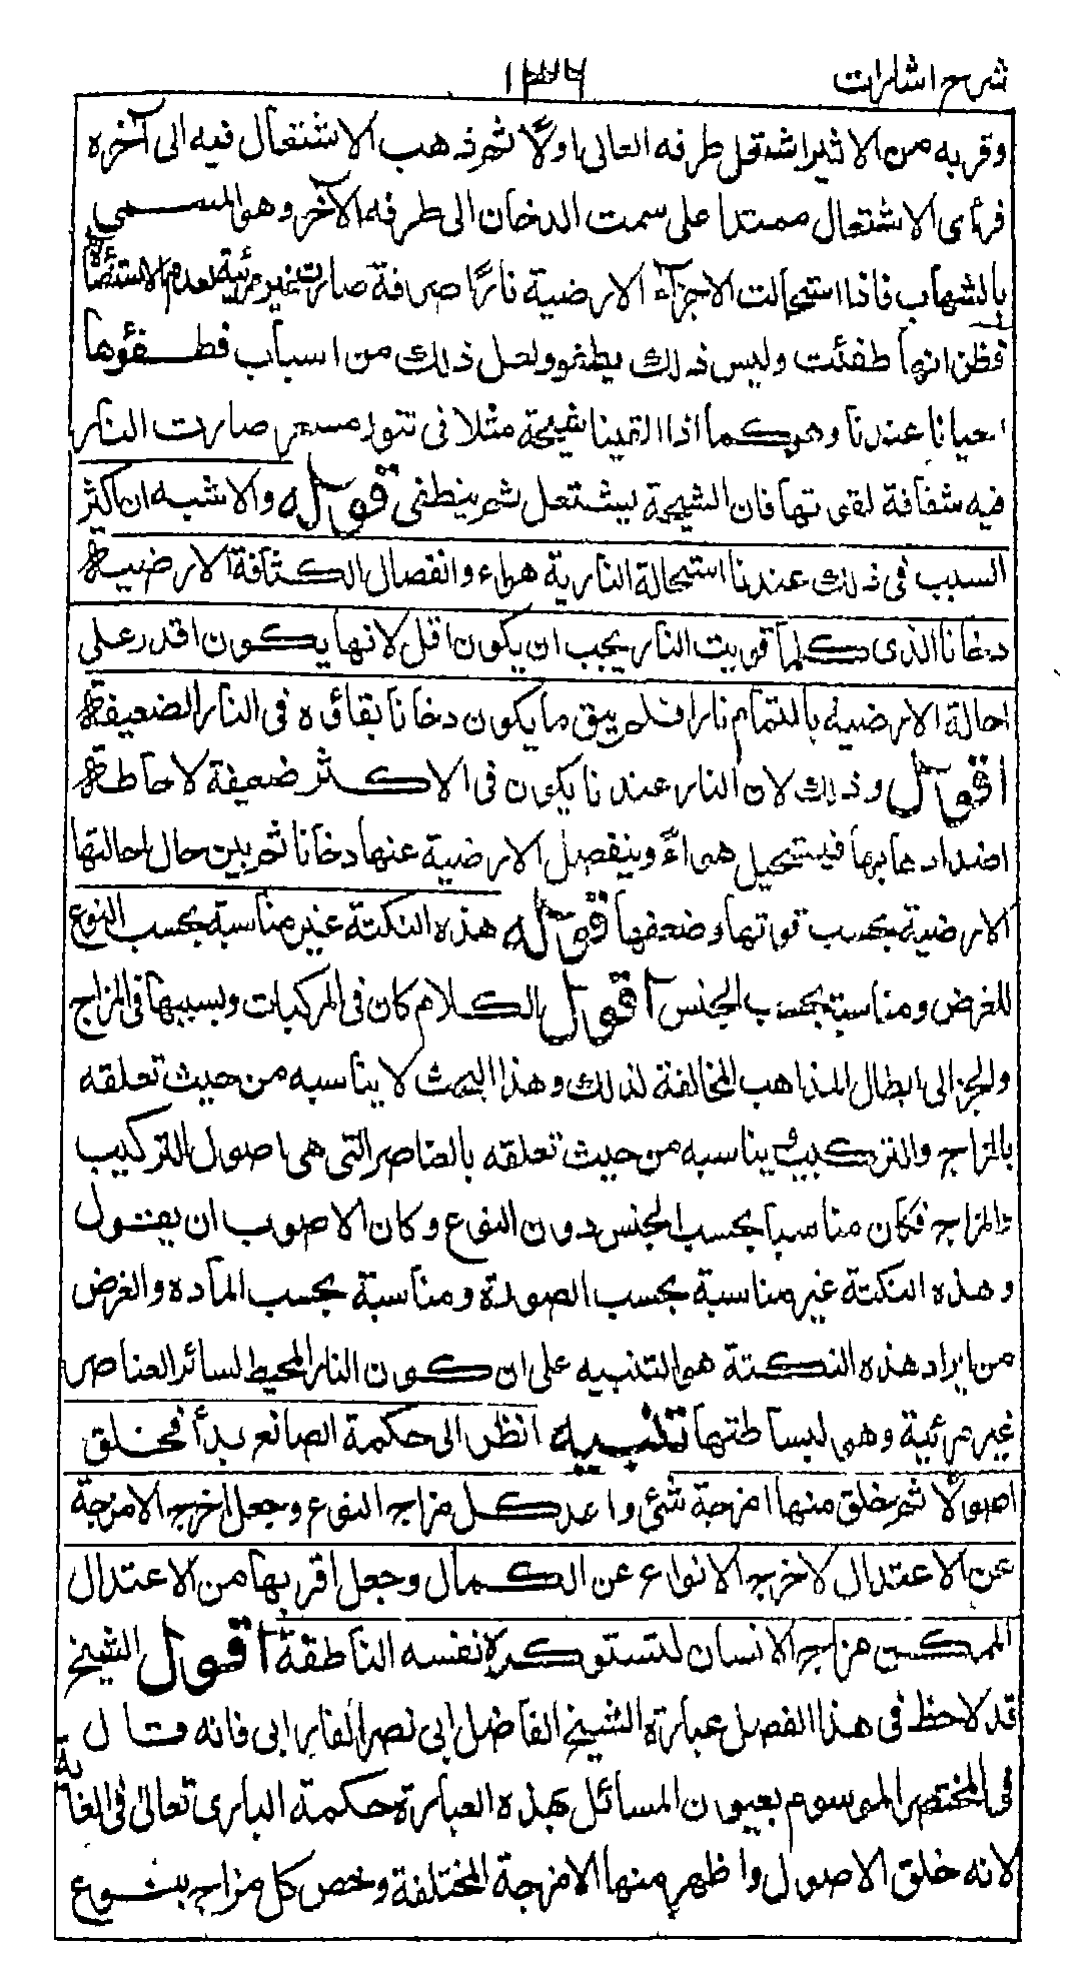 شرح اشارات
١٣٦
وقربه من الاثير اشتعل طرفه العالى اولًا ثم ذهب الاشتعال فيه الى آخره
فرأى الاشتعال ممتدا على سمت الدخان الى طرفه الآخر وهو المسمى
بالشهاب فاذا استحالت الاجزآء الارضية نارًا صرفة صارت غير مرئية لعدم الاستضأة
فظن انها طفئت وليس ذلك بطفو ولعل ذلك من اسباب طفوها
احيانا عندنا وهو كما اذا القينا شيحة مثلا فى تنور مسعر صارت النار
فيه شفافة لقوتها فان الشيحة يشتعل ثم ينطفى قوله والاشبه ان اكثر
السبب فى ذلك عندنا استحالة النارية هواء وانفصال الكثافة الارضية
دخانا الذى كلما قويت النار يجب ان يكون اقل لانها يكون اقدر على
احالة الارضية بالتمام نارا فلم يبق ما يكون دخانا بقاؤه فى النار الضعيفة
اقول وذلك لان النار عندنا يكون فى الاكثر ضعيفة لاحاطة
اضدادها بها فيستحيل هواءً وينفصل الارضية عنها دخانا ثم بين حال احالتها
الارضية بحسب قوتها وضعفها قوله هذه النكتة غير مناسبة بحسب النوع
للغرض ومناسبة بحسب الجنس اقول الكلام كان فى المركبات وبسببها فى المزاج
وانجر الى ابطال المذاهب المخالفة لذلك وهذا البحث لا يناسبه من حيث تعلقه
بالمزاج والتركيب ويناسبه من حيث تعلقه بالعناصر التى هى اصول التركيب
والمزاج فكان مناسبا بحسب الجنس دون النوع وكان الاصوب ان يقول
وهذه النكتة غير مناسبة بحسب الصورة ومناسبة بحسب المادة والغرض
من ايراد هذه النكتة هو التنبيه على ان كون النار المحيط لسائر العناصر
غير مرئية وهى لبساطتها تنبيه انظر الى حكمة الصانع بدأ فخلق
اصولًا ثم خلق منها امزجة شتى واعد كل مزاج النوع وجعل اخرج الامزجة
عن الاعتدال لاخرج الانواع عن الكمال وجعل اقربها من الاعتدال
الممكن مزاج الانسان لتستوكره نفسه الناطقة اقول الشيخ
قد لاحظ فى هذا الفصل عبارة الشيخ الفاضل ابى نصر الفارابى فانه قال
فى المختصر الموسوم بعيون المسائل بهذه العبارة حكمة البارى تعالى فى الغاية
لانه خلق الاصول واظهر منها الامزجة المختلفة وخص كل مزاج بنوع